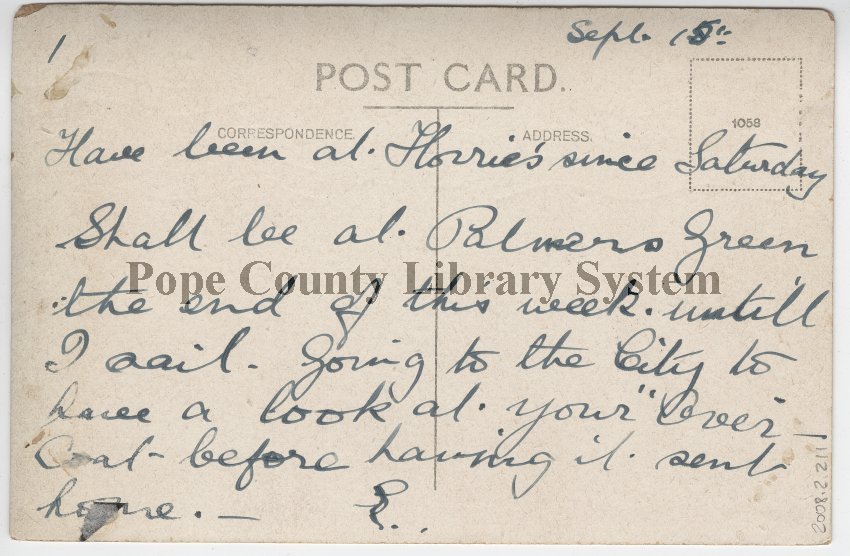 1
Sept. 15"
POST CARD.
CORRESPONDENCE.
ADDRESS.
1058
Have been at. Florrie's since Saturday
Shall be at. Palmers Green
Pope County Library System
the end of this week. untill
I sail - Going to the City to
have a look at. your" Over
Coat - before having it. sent
home. — E..
2008.2.211